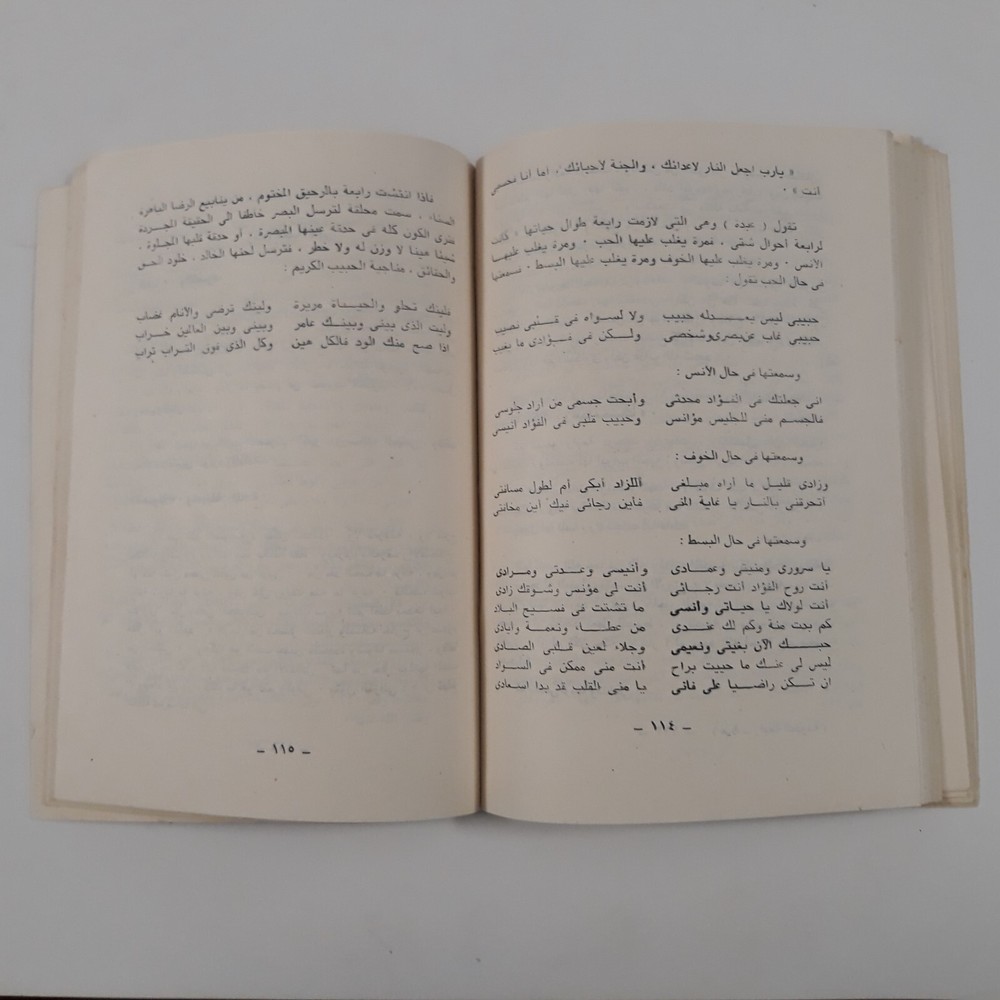 « يارب اجعل النار لاعدائك ، والجنة لاحبائك ، اما أنا فحسبى
أنت » .
تقول ( عبده ) وهى التى لازمت رابعة طوال حياتها « كانت
لرابعة أحوال شتى ، فمرة يغلب عليها الحب . ومرة يغلب عليها
الأنس . ومرة يغلب عليها الخوف ومرة يغلب عليها البسط . فسمعتها
فى حال الحب تقول :
حبيبى ليس يعدله حبيب ولا لسواه فى قلبى نصيب
حبيبى غاب عن بصرى وشخصى ولكن فى فؤادى ما يغيب
وسمعتها فى حال الأنس :
انى جعلتك فى الفؤاد محدثى وأبحت جسمى من أراد جلوسى
فالجسم منى للجليس مؤانس وحبيب قلبى فى الفؤاد أنيسى
وسمعتها فى حال الخوف :
وزادى قليل ما أراه مبلغى أللزاد أبكى أم لطول مسافتى
أتحرقنى بالنار يا غاية المنى فأين رجائى فيك أين مخافتى
وسمعتها فى حال البسط :
يا سرورى ومنيتى وعمادى وأنيسى وعدتى ومرادى
أنت روح الفؤاد أنت رجائى أنت لى مؤنس وشوقك زادى
أنت لولاك يا حياتى وانسى ما تشتت فى فسيح البلاد
كم بدت منة وكم لك عندى من عطاء ونعمة وأيادى
حبك الآن بغيتى ونعيمى وجلاء لعين قلبى الصادى
ليس لى عنك ما حييت براح أنت منى ممكن فى السواد
ان تكن راضيا على فانى يا منى القلب قد بدا اسعادى
– ١١٤ –
فاذا انتشت رابعة بالرحيق المختوم ، من ينابيع الرضا الطاهرة
سمت محلقة لترسل البصر خاطفا الى الحقيقة المجردة
فترى الكون كله فى حدقة عينها المبصرة ، أو حدقة قلبها المجلوة ،
شيئا هينا لا وزن له ولا خطر ، فترسل لحنها الخالد ، خلود الحق
والحقائق ، مناجية الحبيب الكريم :
فليتك تحلو والحياة مريرة وليتك ترضى والأنام غضاب
وليت الذى بينى وبينك عامر وبينى وبين العالمين خراب
اذا صح منك الود فالكل هين وكل الذى فوق التراب تراب
– ١١٥ –